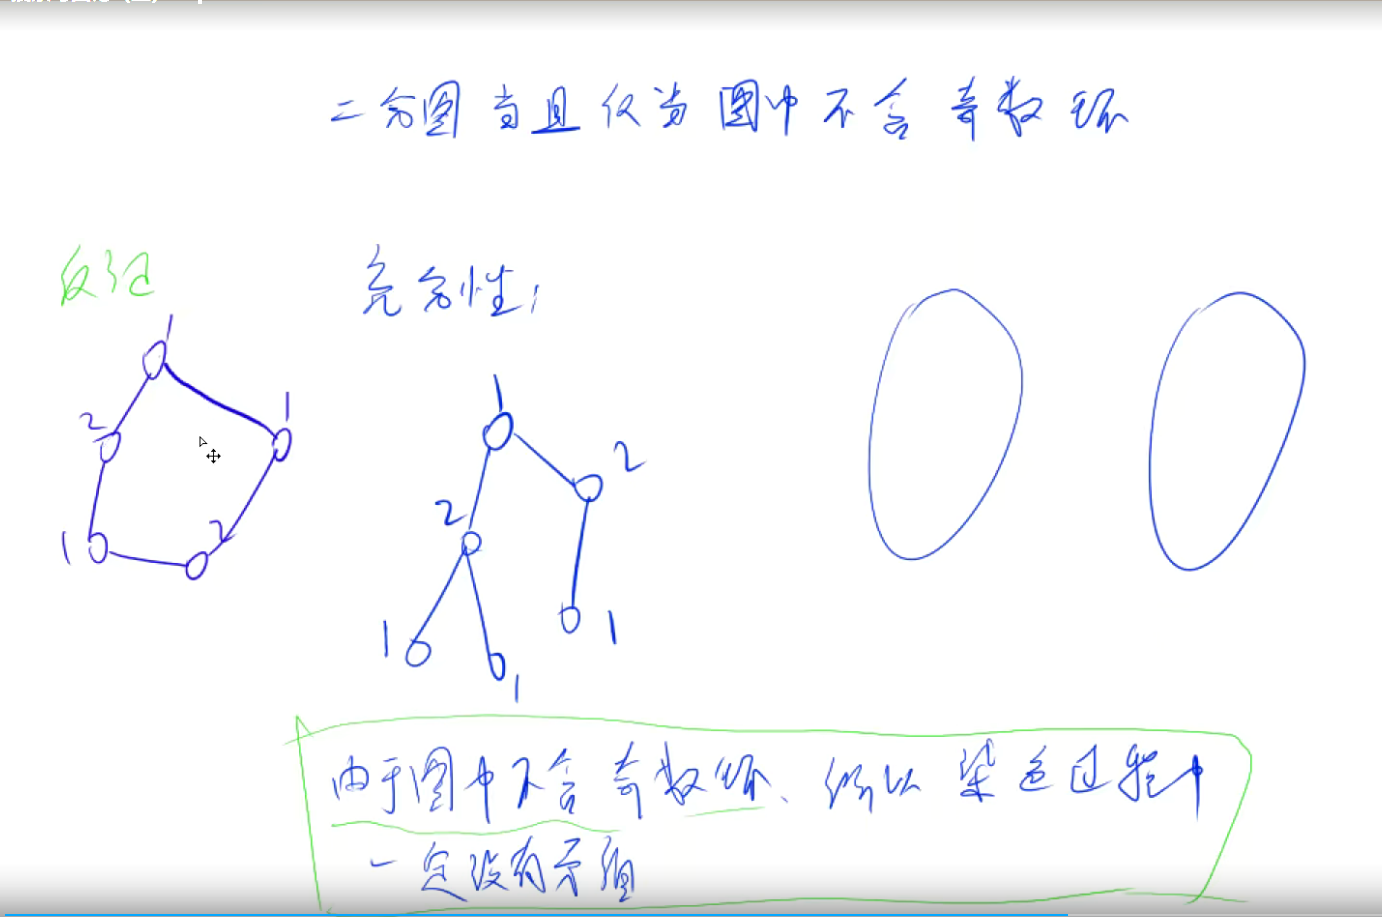 二分图 当且仅当 图中不含奇数环
反证
充分性:
1
2
1
1
2
1
2
2
1
1
1
由于图中不含奇数环、所以染色过程中
一定没有矛盾